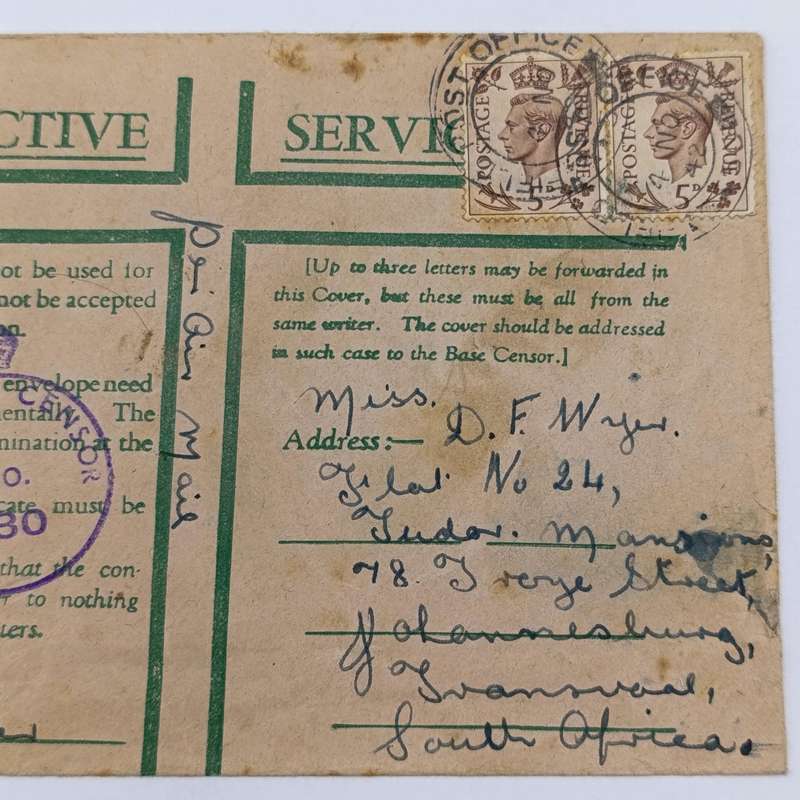 CTIVE
SERVIC
POST OFFICE
POSTAGE
REVENUE
5D
OFFICE
POSTAGE
REVENUE
5D
4 NO
42
Per Air Mail
ot be used for
not be accepted
on.
envelope need
mentally. The
mination at the
cate must be
that the con-
r to nothing
ters.
CENSOR
O.
30
[Up to three letters may be forwarded in
this Cover, but these must be all from the
same writer. The cover should be addressed
in such case to the Base Censor.]
Miss.
Address:— D. F. Wyer.
Flat No 24,
Tudor. Mansions,
78. Troye Street,
Johannesburg,
Transvaal,
South Africa.